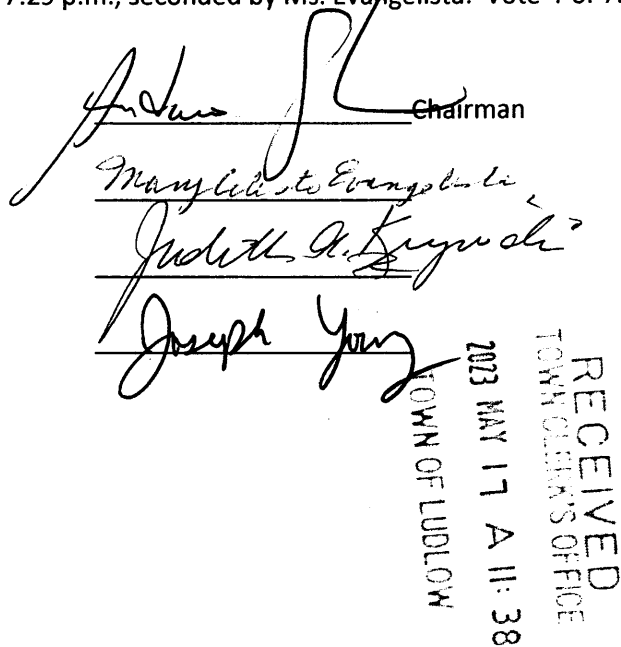 7:29 p.m., seconded by Ms. Evangelista. Vote 4 of
Chairman
Evangelista
Judith A.
Joseph Young
RECEIVED
TOWN CLERK'S OFFICE
2023 MAY 17 A 11: 38
TOWN OF LUDLOW